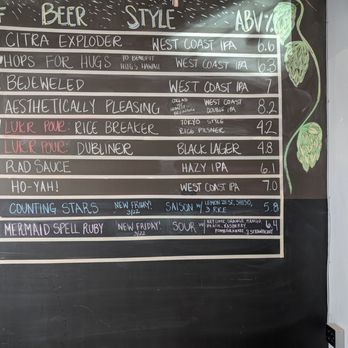 BEER STYLE ABV%
CITRA EXPLODER WEST COAST IPA 6.6
HOPS FOR HUGS TO BENEFIT HUGS HAWAII WEST COAST IPA 6.3
BEJEWELED WEST COAST IPA 7
AESTHETICALLY PLEASING WEST COAST DOUBLE IPA 8.2
LUKR POUR: RICE BREAKER TOKYO STYLE RICE PILSNER 4.2
LUKR POUR: DUBLINER BLACK LAGER 4.8
RAD SAUCE HAZY IPA 6.1
HO-YAH! WEST COAST IPA 7.0
COUNTING STARS NEW FRIDAY! 3/22 SAISON w/ LEMON ZEST, SHISO, & RICE 5.8
MERMAID SPELL RUBY NEW FRIDAY! 3/22 SOUR w/ 6.4